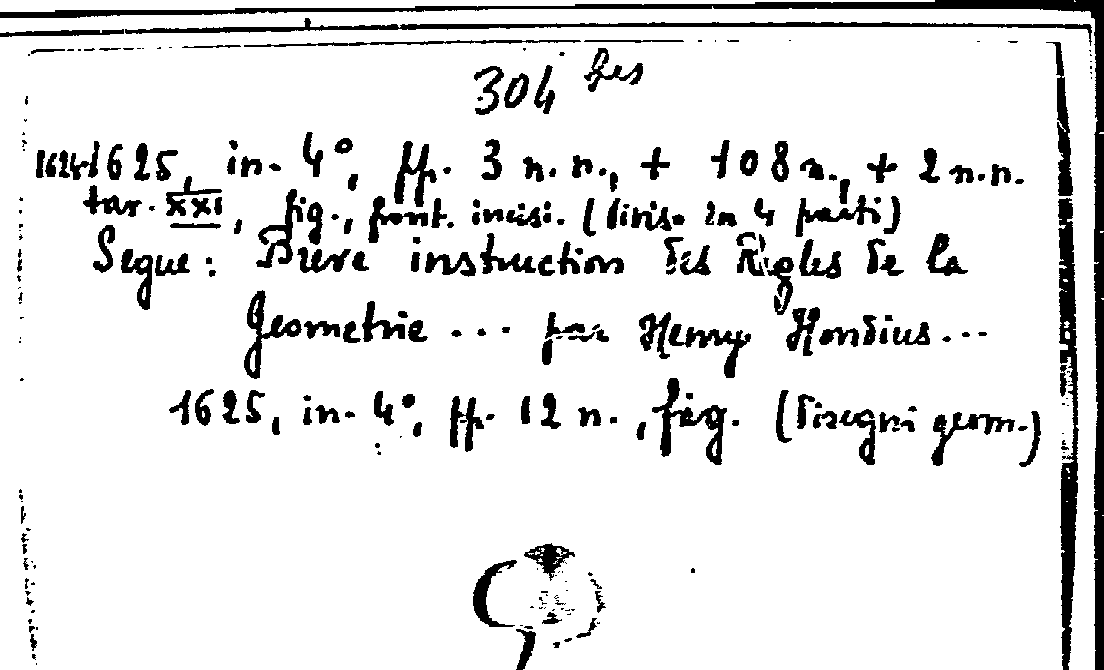 304 bis
1624-1625, in-4°, pp. 3 n.n., + 108 n., + 2 n.n.
tav. XXI, fig., front. incisi. (divis. in 4 parti)
Segue: Breve instruction des Regles de la
Geometrie ... par Henry Hondius...
1625, in-4°, pp. 12 n., fig. (disegni geom.)